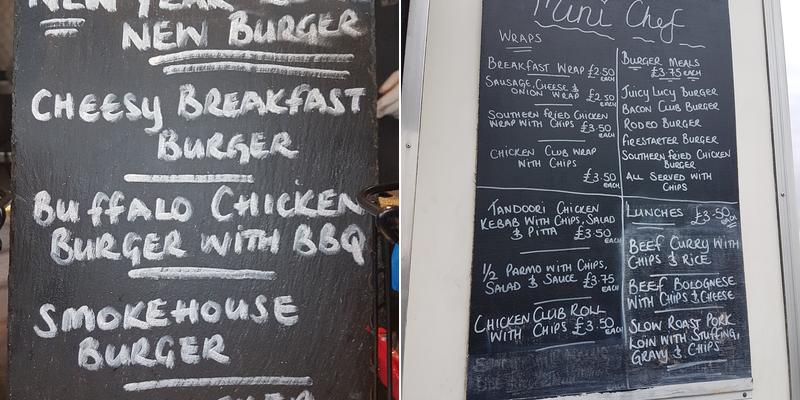 NEW YEAR
NEW BURGER
CHEESY BREAKFAST
BURGER
BUFFALO CHICKEN
BURGER WITH BBQ
SMOKEHOUSE
BURGER
Mini Chef
WRAPS
BREAKFAST WRAP £2.50
SAUSAGE, CHEESE &
ONION WRAP £2.50
EACH
SOUTHERN FRIED CHICKEN
WRAP WITH CHIPS £3.50
EACH
CHICKEN CLUB WRAP
WITH CHIPS
£3.50
EACH
TANDOORI CHICKEN
KEBAB WITH CHIPS, SALAD
& PITTA £3.50
EACH
1/2 PARMO WITH CHIPS,
SALAD & SAUCE £3.75
EACH
CHICKEN CLUB ROLL
WITH CHIPS £3.50
EACH
BURGER MEALS
£3.75 EACH
JUICY LUCY BURGER
BACON CLUB BURGER
RODEO BURGER
FIRESTARTER BURGER
SOUTHERN FRIED CHICKEN
BURGER
ALL SERVED WITH
CHIPS
LUNCHES £3.50
EACH
BEEF CURRY WITH
CHIPS & RICE
BEEF BOLOGNESE
WITH CHIPS & CHEESE
SLOW ROAST PORK
LOIN WITH STUFFING,
GRAVY & CHIPS